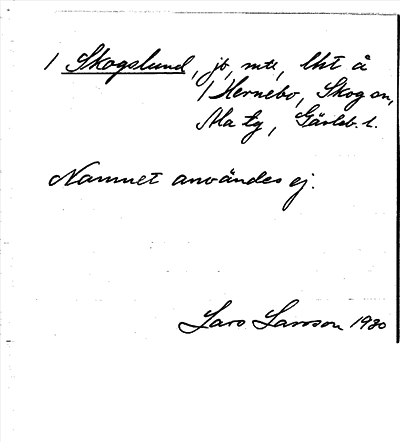 1 Skogslund, jb, mtl, lht å
1 Hernebo, Skog sn,
Ala tg, Gävleb. l.
Namnet användes ej.
Lars Larsson 1930